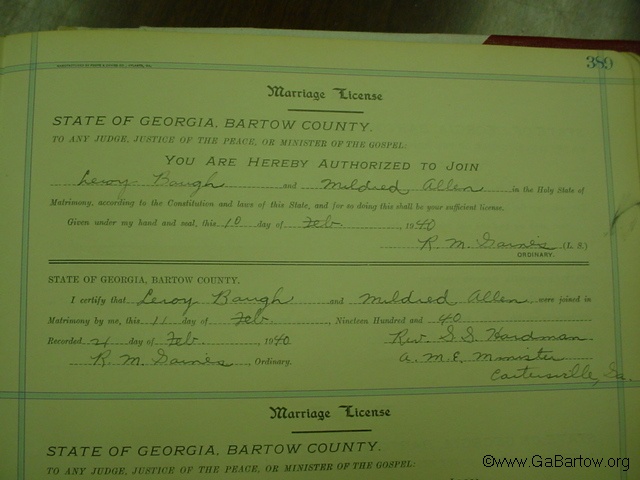 389
Marriage License
STATE OF GEORGIA, BARTOW COUNTY.
TO ANY JUDGE, JUSTICE OF THE PEACE, OR MINISTER OF THE GOSPEL:
YOU ARE HEREBY AUTHORIZED TO JOIN
Leroy Baugh and Mildred Allen in the Holy State of
Matrimony, according to the Constitution and laws of this State, and for so doing this shall be your sufficient license.
Given under my hand and seal, this 10 day of Feb, 1940
R. M. Gaines (L. S.)
ORDINARY.
STATE OF GEORGIA, BARTOW COUNTY.
I certify that Leroy Baugh and Mildred Allen were joined in
Matrimony by me, this 11 day of Feb, Nineteen Hundred and 40
Recorded 21 day of Feb, 1940 Rev. S. S. Hardman
R. M. Gaines, Ordinary. A. M. E. Minister
Cartersville, Ga.
Marriage License
STATE OF GEORGIA, BARTOW COUNTY.
TO ANY JUDGE, JUSTICE OF THE PEACE, OR MINISTER OF THE GOSPEL:
©www.GaBartow.org